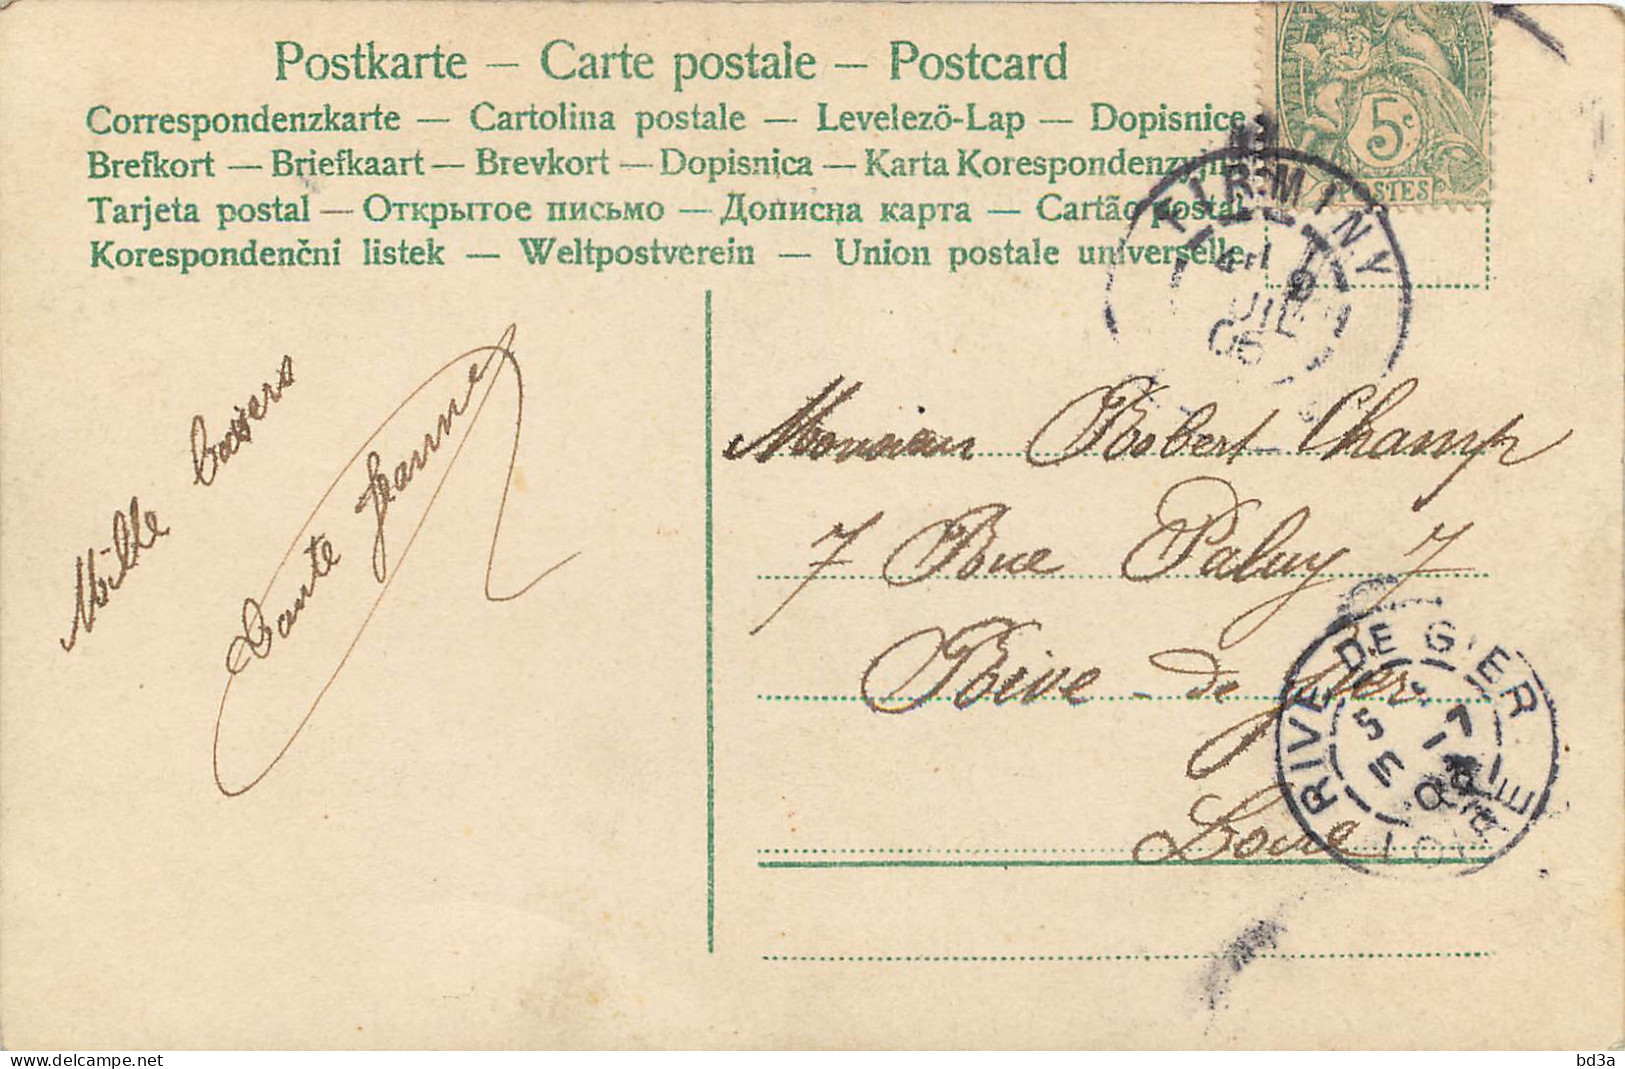 Postkarte — Carte postale — Postcard
Correspondenzkarte — Cartolina postale — Levelező-Lap — Dopisnice
Brefkort — Briefkaart — Brevkort — Dopisnica — Karta Korespondenzyjna
Tarjeta postal — Открытое письмо — Дописна карта — Cartão postal
Korespondenční listek — Weltpostverein — Union postale universelle
5c
POSTES
FIRMINY
JUIL
06
Mille baisers
Tante Jeanne
Monsieur Robert Champ
7 Rue Paluy 7
Rive - de Gier
Loire
RIVE DE GIER
LOIRE
delcampe.net
bd3a